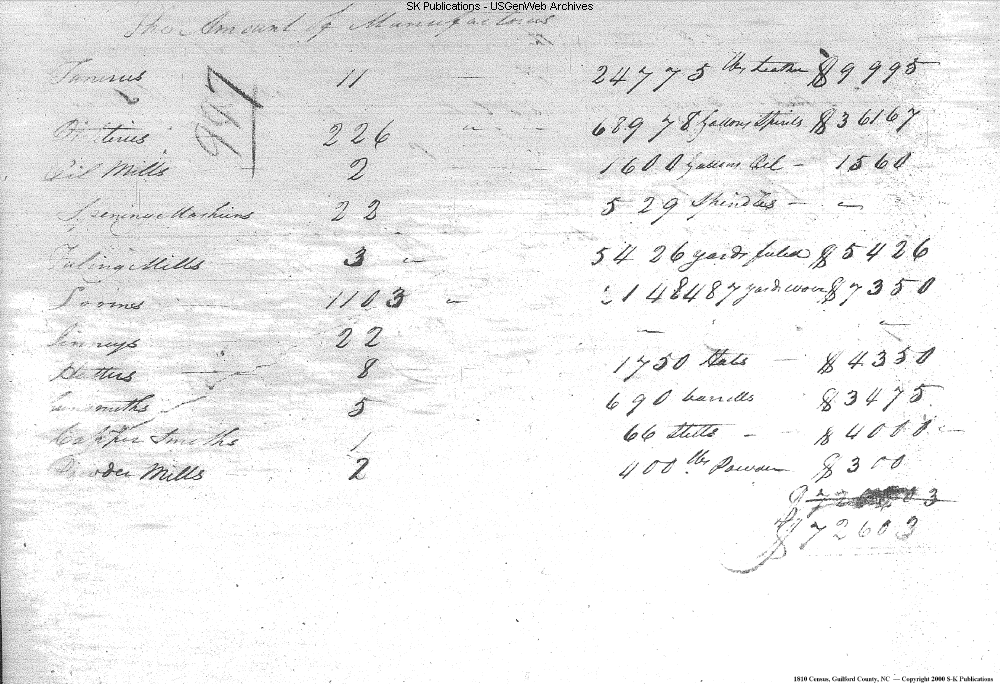 SK Publications - USGenWeb Archives
The Amount of Manufactories
Taneries 11 — 24775 lbs Leather $9995
997
226 — 68978 Gallons Spirits $36167
Oil Mills 2 1600 Gallons Oil — 1560
Spening Mashiens 22 529 Spindles — —
Fuling Mills 3 — 5426 yards fuled $5426
Looms 1103 — 148487 yards wove $7350
Jenneys 22 — —
Hatters — 8 1750 Hats — $4350
Gunsmiths 5 690 barrells $3475
Copper Smiths 1 66 Stills — $4000 —
Powder Mills 2 400 lbs Powder $300
$72603
1810 Census, Guilford County, NC — Copyright 2000 S-K Publications